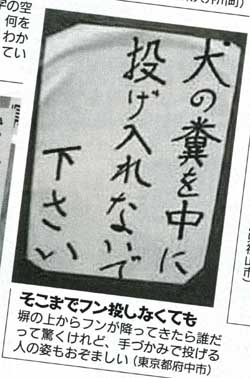 犬の糞を中に
投げ入れないで
下さい
そこまでフン投しなくても
塀の上からフンが降ってきたら誰だ
って驚くけれど、手づかみで投げる
人の姿もおぞましい（東京都府中市）
字の空
何を
わか
てい